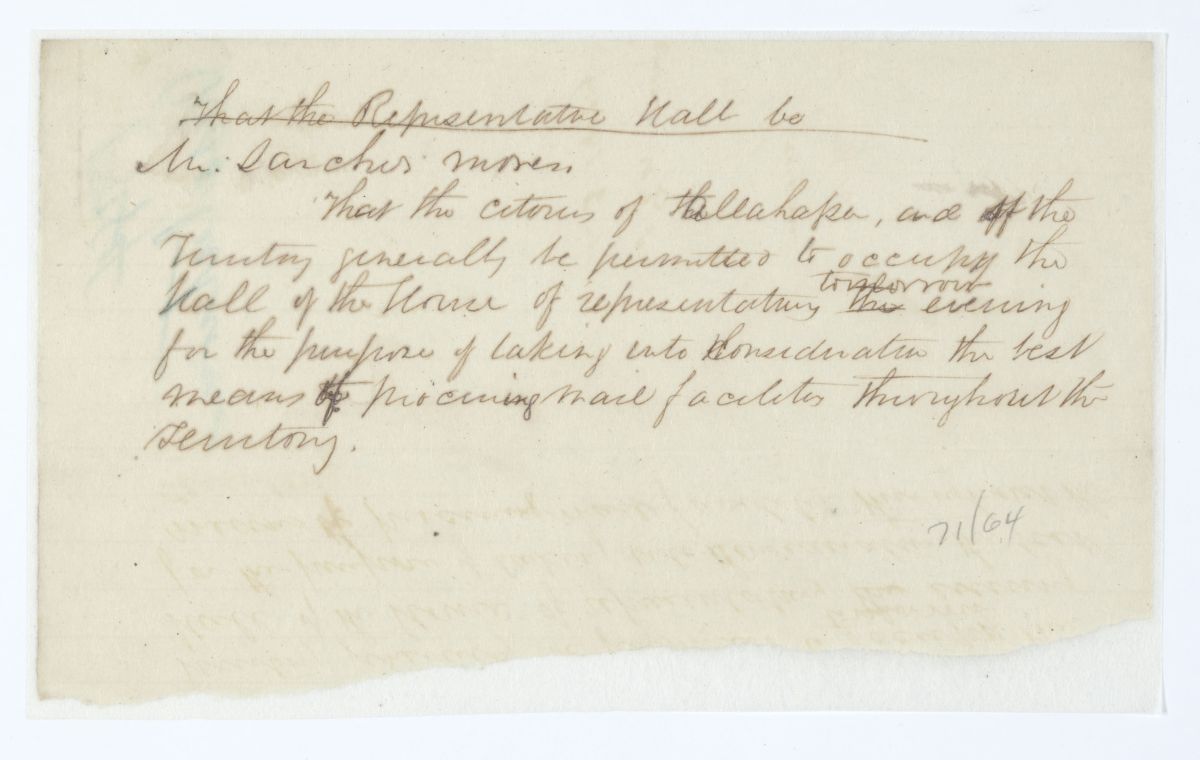 That the Representative Hall be
Mr. Sanches moves
That the citizens of Tallahassee, and of the
Territory generally be permitted to occupy the
tomorrow
hall of the House of representatives this evening
for the purpose of taking into consideration the best
means of procuring mail facilites throughout the
Territory.
71/64